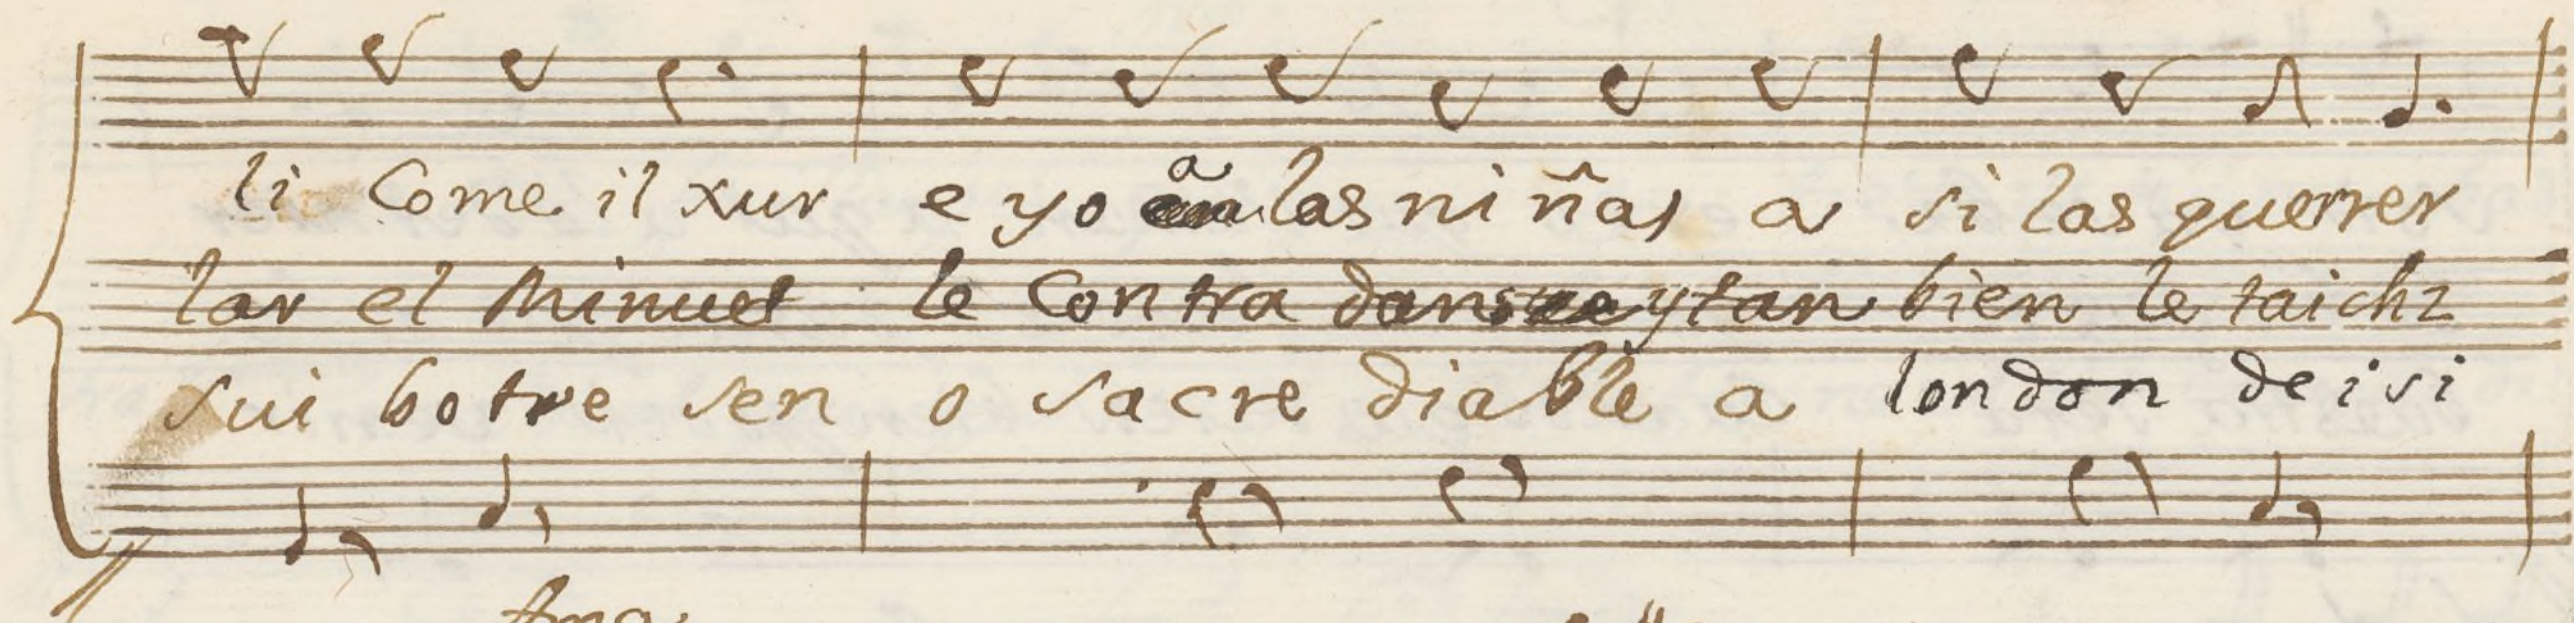 li Come il xur e yo a las ni ñas a si las querrer
lar el Minuet le Contra dans y tan bien le taichz
sui botre sen o sacre diable a london de isi